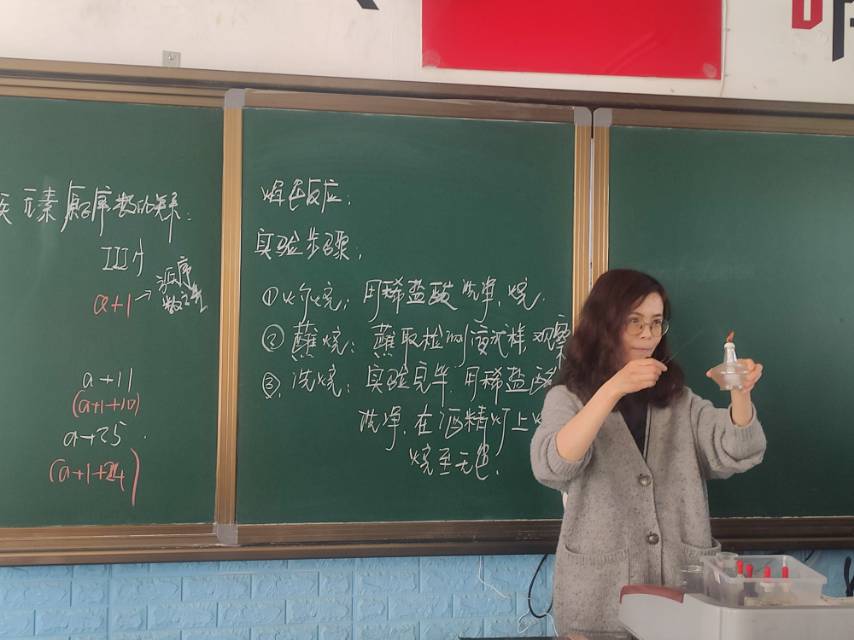 族元素原子序数的关系:
IIIA
a+1 → 源序数之差
a+11
(a+1+10)
a+25.
(a+1+24)
焰色反应.
实验步骤:
①灼烧: 用稀盐酸洗净, 烧.
②蘸烧: 蘸取检测液试样 观察
③.洗烧: 实验完毕.用稀盐酸
洗净,在酒精灯上灼
烧至无色.